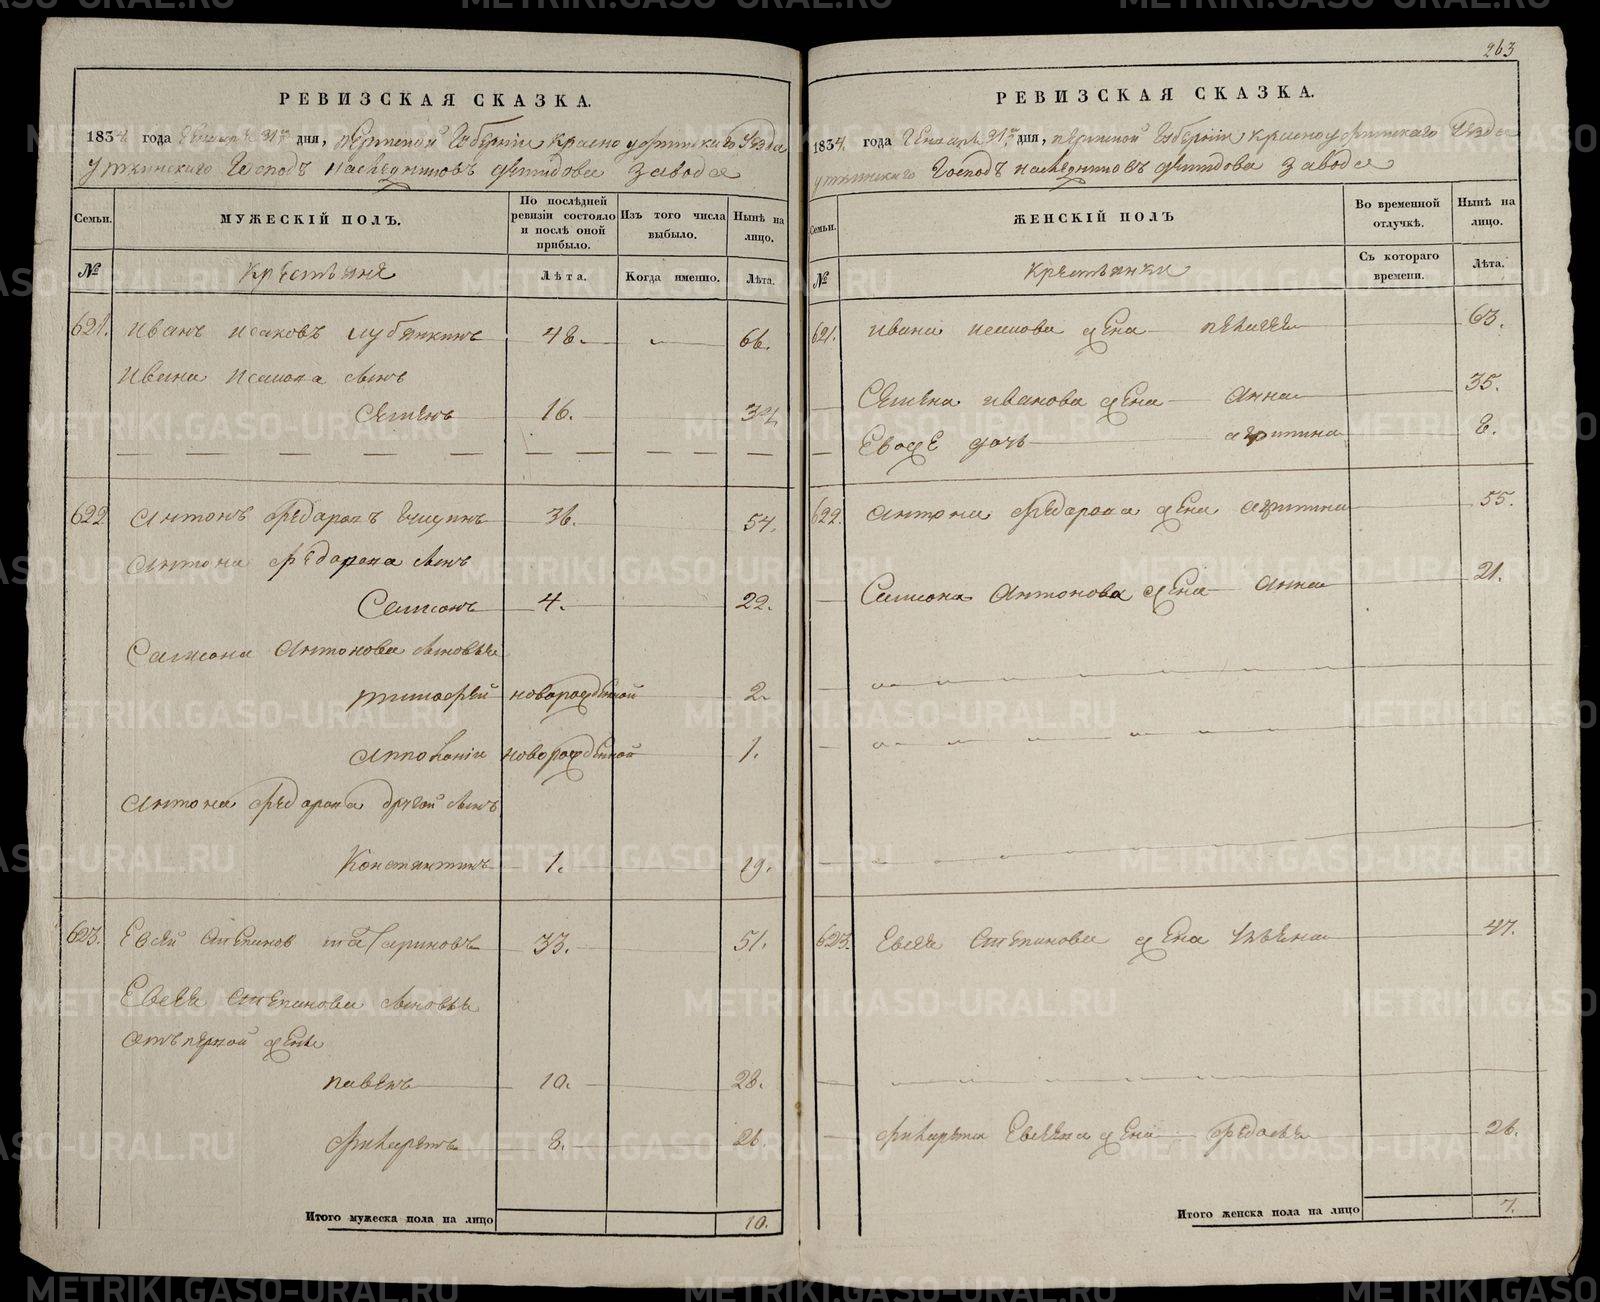 263
РЕВИЗСКАЯ СКАЗКА.
1834 года Генваря 31 дня, Пермской Губернiи Красноуфимскаго Уезда
Уткинскаго Господъ наследниковъ Демидова завода
Семьи.
МУЖЕСКІЙ ПОЛЪ.
По послѣдней ревизіи состояло и послѣ оной прибыло.
Изъ того числа выбыло.
Нынѣ на лицо.
№
Крестьяне
Лѣта.
Когда именно.
Лѣта.
621. Иванъ Исаковъ 48. 66.
Ивана Исакова сынъ
Семенъ 16. 34
622 Антонъ Федоровъ 36. 54.
Антона Федорова сынъ
Самсонъ 4. 22.
Самсона Антонова сыновья
Тимофей новорожденной 2.
новорожденной 1.
Антона Федорова другой сынъ
Константинъ 1. 19.
623. Евсей Степановъ 33. 51.
Евсея Степанова сыновья
отъ первой жены
Павелъ 10. 28.
Филаретъ 8. 26.
Итого мужеска пола на лицо 10.
РЕВИЗСКАЯ СКАЗКА.
1834 года Генваря 31 дня, Пермской Губернiи Красноуфимскаго Уезда
Уткинскаго Господъ наследниковъ Демидова завода
Семьи.
ЖЕНСКІЙ ПОЛЪ
Во временной отлучкѣ.
Нынѣ на лицо.
№
Крестьянки
Съ котораго времени.
Лѣта.
621. Ивана Исакова жена Пелагея 63.
Семена Иванова жена Анна 35.
Евоже дочь Агрипина 8.
622. Антона Федорова жена Агрипина 55.
Самсона Антонова жена Анна 21.
623. Евсея Степанова жена 47.
Филарета Евсеева жена Федосья 26.
Итого женска пола на лицо 7.
METRIKI.GASO-URAL.RU